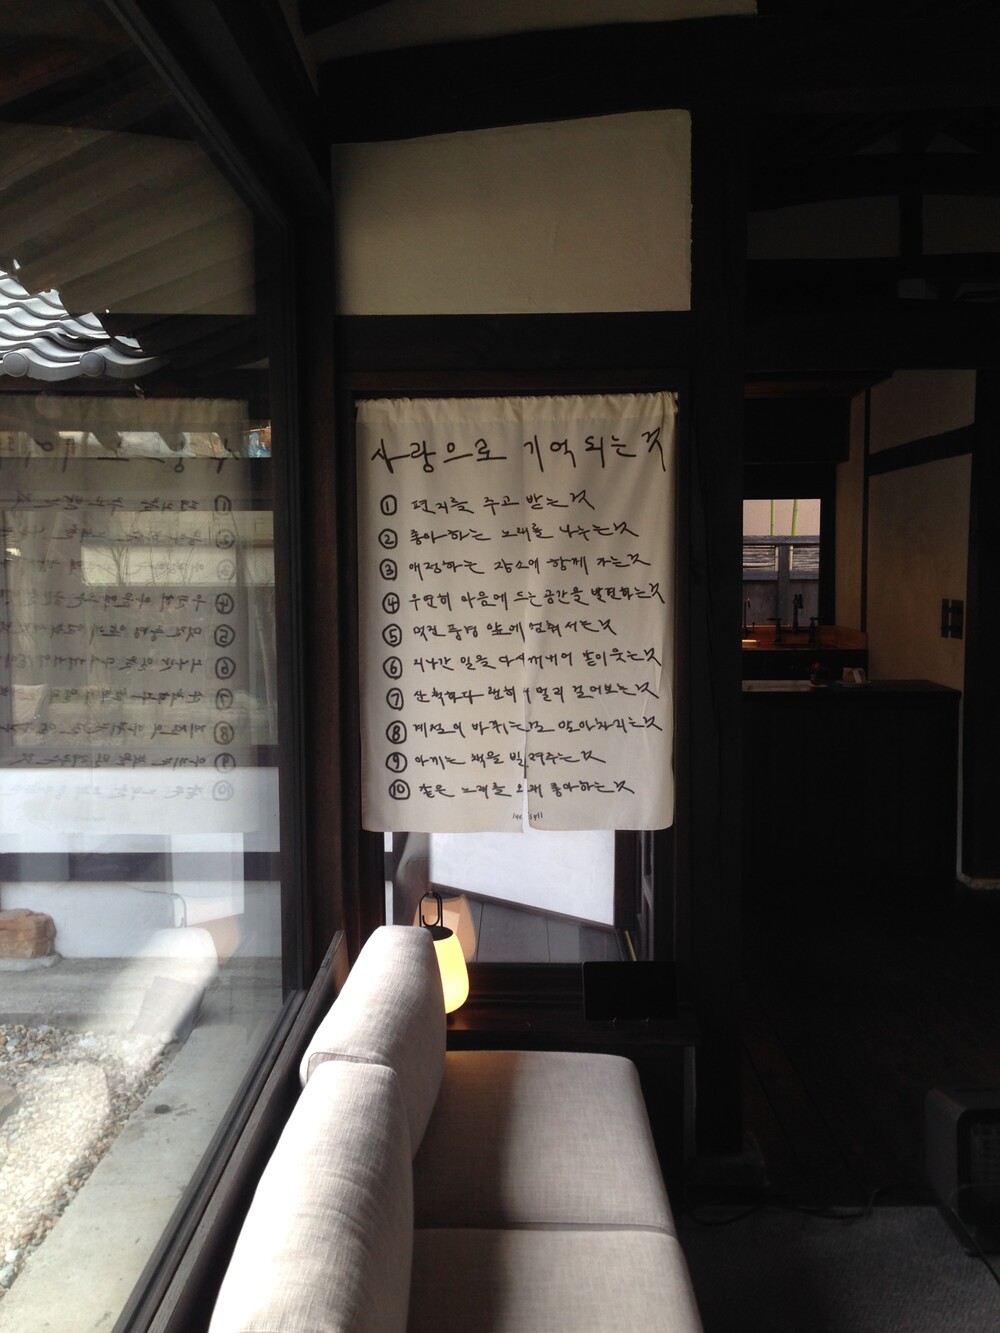 사랑으로 기억되는 것
① 편지를 주고 받는 것
② 좋아하는 노래를 나누는 것
③ 애정하는 장소에 함께 가는 것
④ 우연히 마음에 드는 공간을 발견하는 것
⑤ 멋진 풍경 앞에 멈춰서는 것
⑥ 지나간 일을 다시 꺼내어 같이 웃는 것
⑦ 산책하다 괜히 더 멀리 걸어보는 것
⑧ 계절이 바뀌는 걸 알아차리는 것
⑨ 아끼는 책을 빌려주는 것
⑩ 좋은 노래를 오래 좋아하는 것